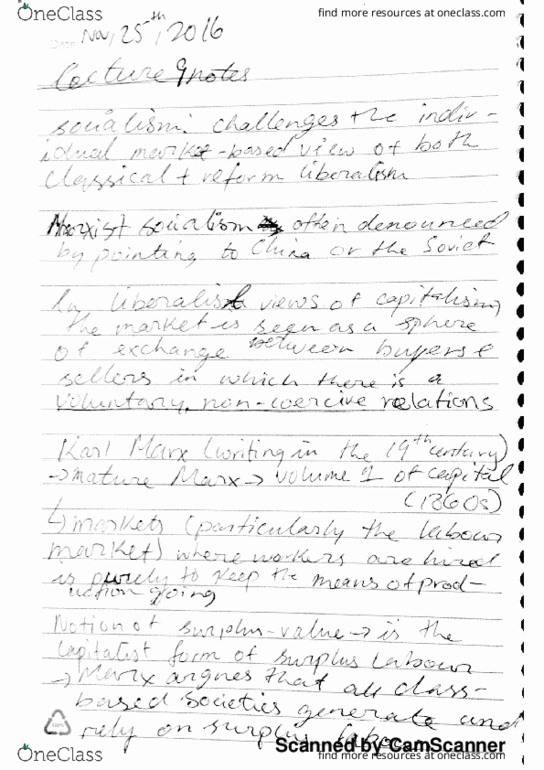 OneClass
find more resources at oneclass.com
OneClass
find more resources at oneclass.com
Nov, 25th, 2016
Lecture 9 notes
socialism: challenges the indiv-
idual market-based view of both
classical + reform liberalism
Marxist socialism often denounced
by pointing to China or the Soviet
In liberalist views of capitalism,
the market is seen as a sphere
of exchange between buyers &
sellers in which there is a
voluntary, non-coercive relations
Karl Marx (writing in the 19th century)
→mature Marx→ volume 1 of capital
(1860s)
↳markets (particularly the labour
market) where workers are hired
is purely to keep the means of prod-
uction going
Notion of surplus-value→ is the
capitalist form of surplus labour
→ Marx argues that all class-
based societies generate and
rely on surplus labour
Scanned by CamScanner
OneClass
find more resources at oneclass.com